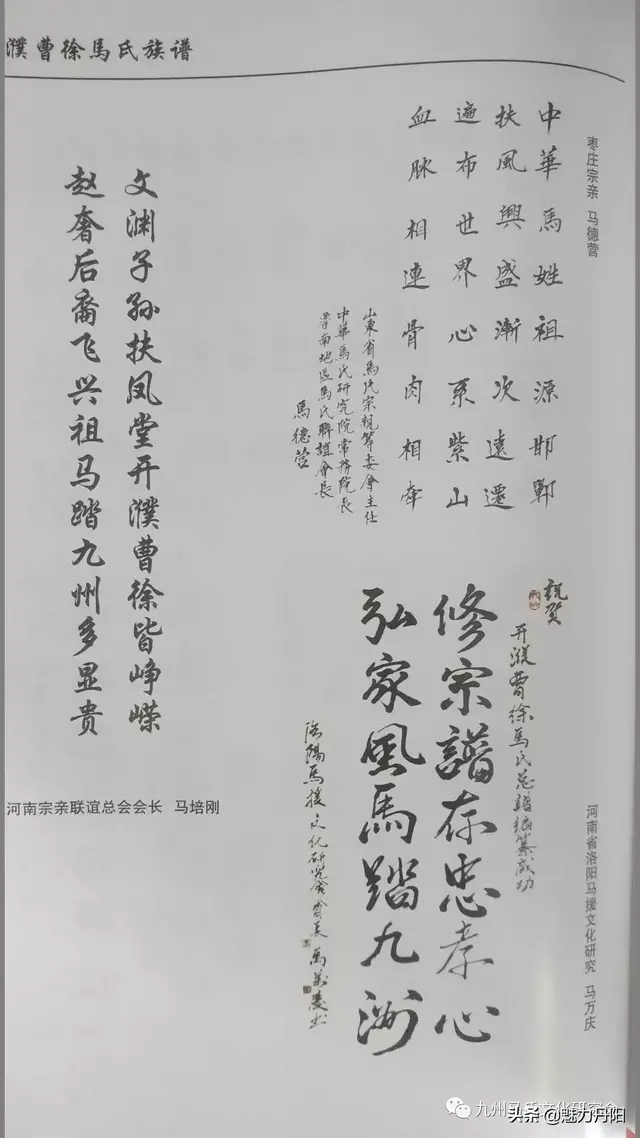 濮曹徐馬氏族谱
枣庄宗亲 马德营
中華馬姓祖源邯鄲
扶風興盛漸次遠遷
遍布世界心系紫山
血脉相連骨肉相牵
山東省馬氏宗親筹委會主任
中華馬氏研究院常務院长
魯南地區馬氏聯誼會長
馬德营
文渊子孙扶风堂开濮曹徐皆峥嵘
赵奢后裔飞兴祖马踏九州多显贵
河南宗亲联谊总会会长 马培刚
河南省洛阳马援文化研究 马万庆
敬贺
开濮曹徐馬氏总譜编纂成功
修宗譜存忠孝心
弘家風馬踏九洲
洛陽馬援文化研究会会长 馬萬慶书
九州马氏文化研究会
头条 @魅力丹阳